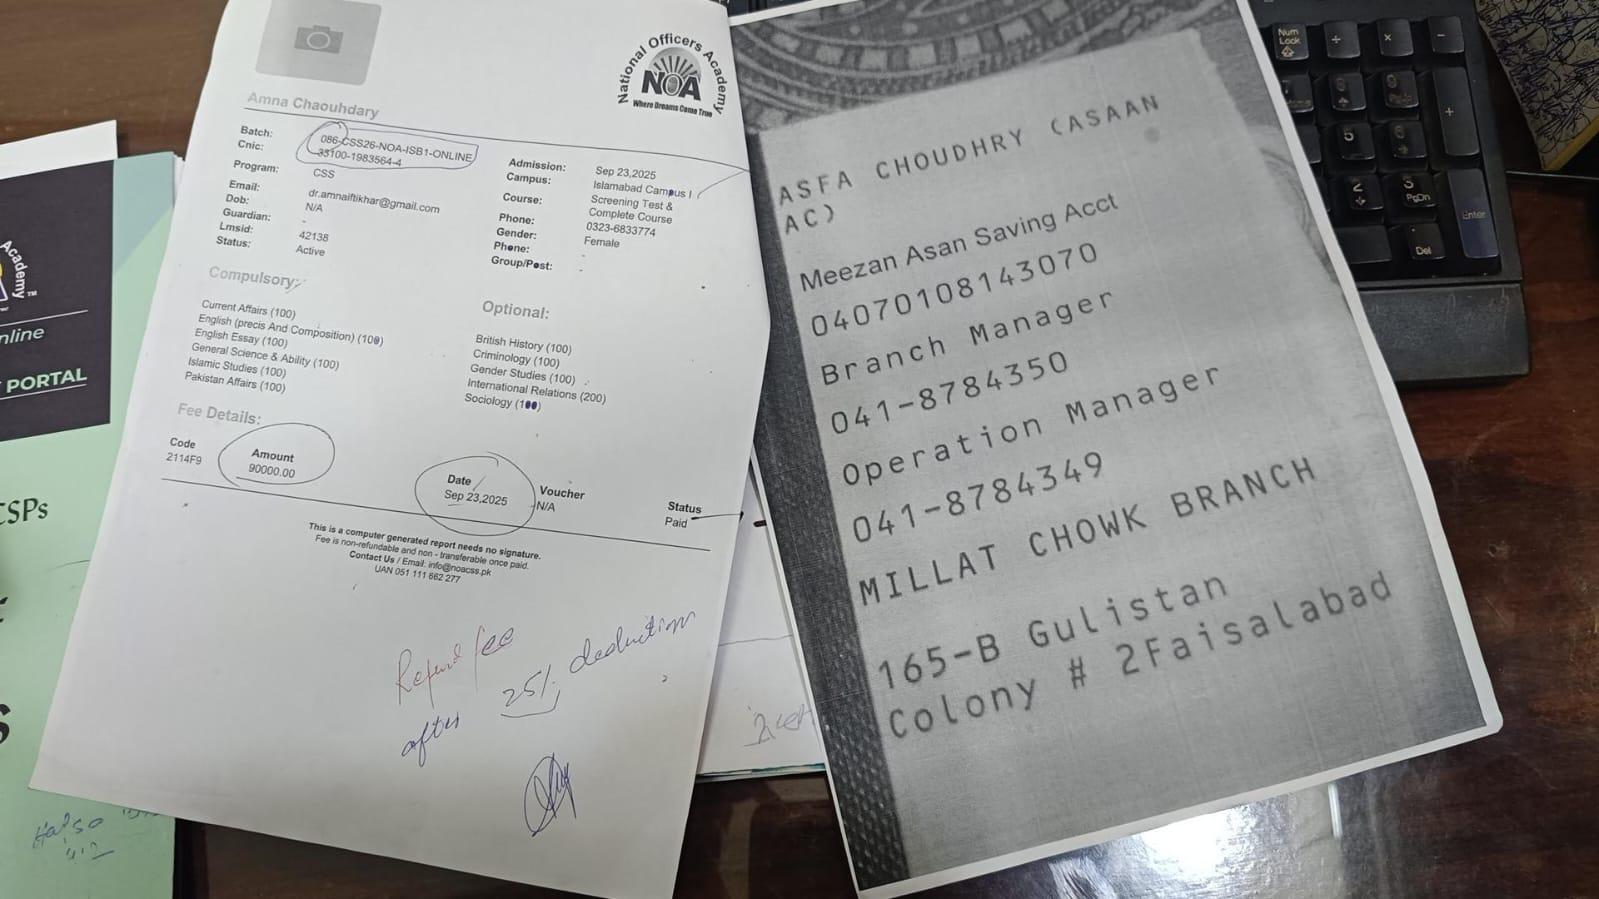 Academy
TM
nline
PORTAL
CSPs
S
National Officers Academy
NOA
Where Dreams Come True
Amna Chaouhdary
Batch: 086-CSS26-NOA-ISB1-ONLINE
Cnic: 33100-1983564-4
Program: CSS
Email: dr.amnaiftikhar@gmail.com
Dob: N/A
Guardian: -
Lmsid: 42138
Status: Active
Admission: Sep 23,2025
Campus: Islamabad Campus I
Course: Screening Test &
Complete Course
Phone: 0323-6833774
Gender: Female
Phone: -
Group/Post: -
Compulsory:
Current Affairs (100)
English (precis And Composition) (100)
English Essay (100)
General Science & Ability (100)
Islamic Studies (100)
Pakistan Affairs (100)
Optional:
British History (100)
Criminology (100)
Gender Studies (100)
International Relations (200)
Sociology (100)
Fee Details:
Code Amount Date Voucher Status
2114F9 90000.00 Sep 23,2025 N/A Paid
This is a computer generated report needs no signature.
Fee is non-refundable and non - transferable once paid.
Contact Us / Email: info@noacss.pk
UAN 051 111 662 277
Refund fee
after 25% deduction
ASFA CHOUDHRY (ASAAN
AC)
Meezan Asan Saving Acct
04070108143070
Branch Manager
041-8784350
Operation Manager
041-8784349
MILLAT CHOWK BRANCH
165-B Gulistan
Colony # 2Faisalabad
Num
Lock
÷
×
-
+
5
2
3
PgDn
Enter
Del